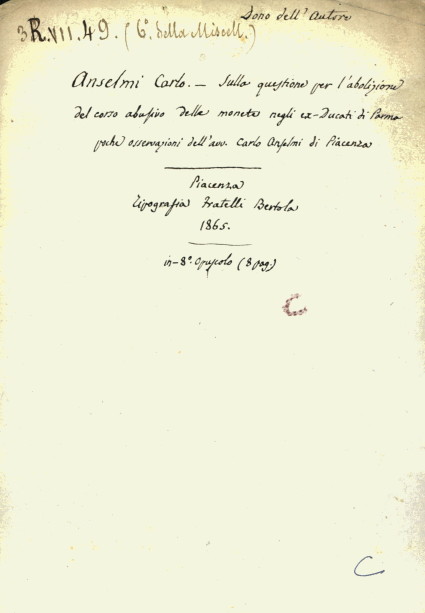 Dono dell'Autore
3R.VII.49. (6.° della Miscell.)
Anselmi Carlo. — Sulla questione per l'abolizione
del corso abusivo della moneta negli ex-Ducati di Parma
poche osservazioni dell'avv. Carlo Anselmi di Piacenza
Piacenza
Tipografia Fratelli Bertola
1865.
in-8.° opuscolo (8 pag.)
C
C